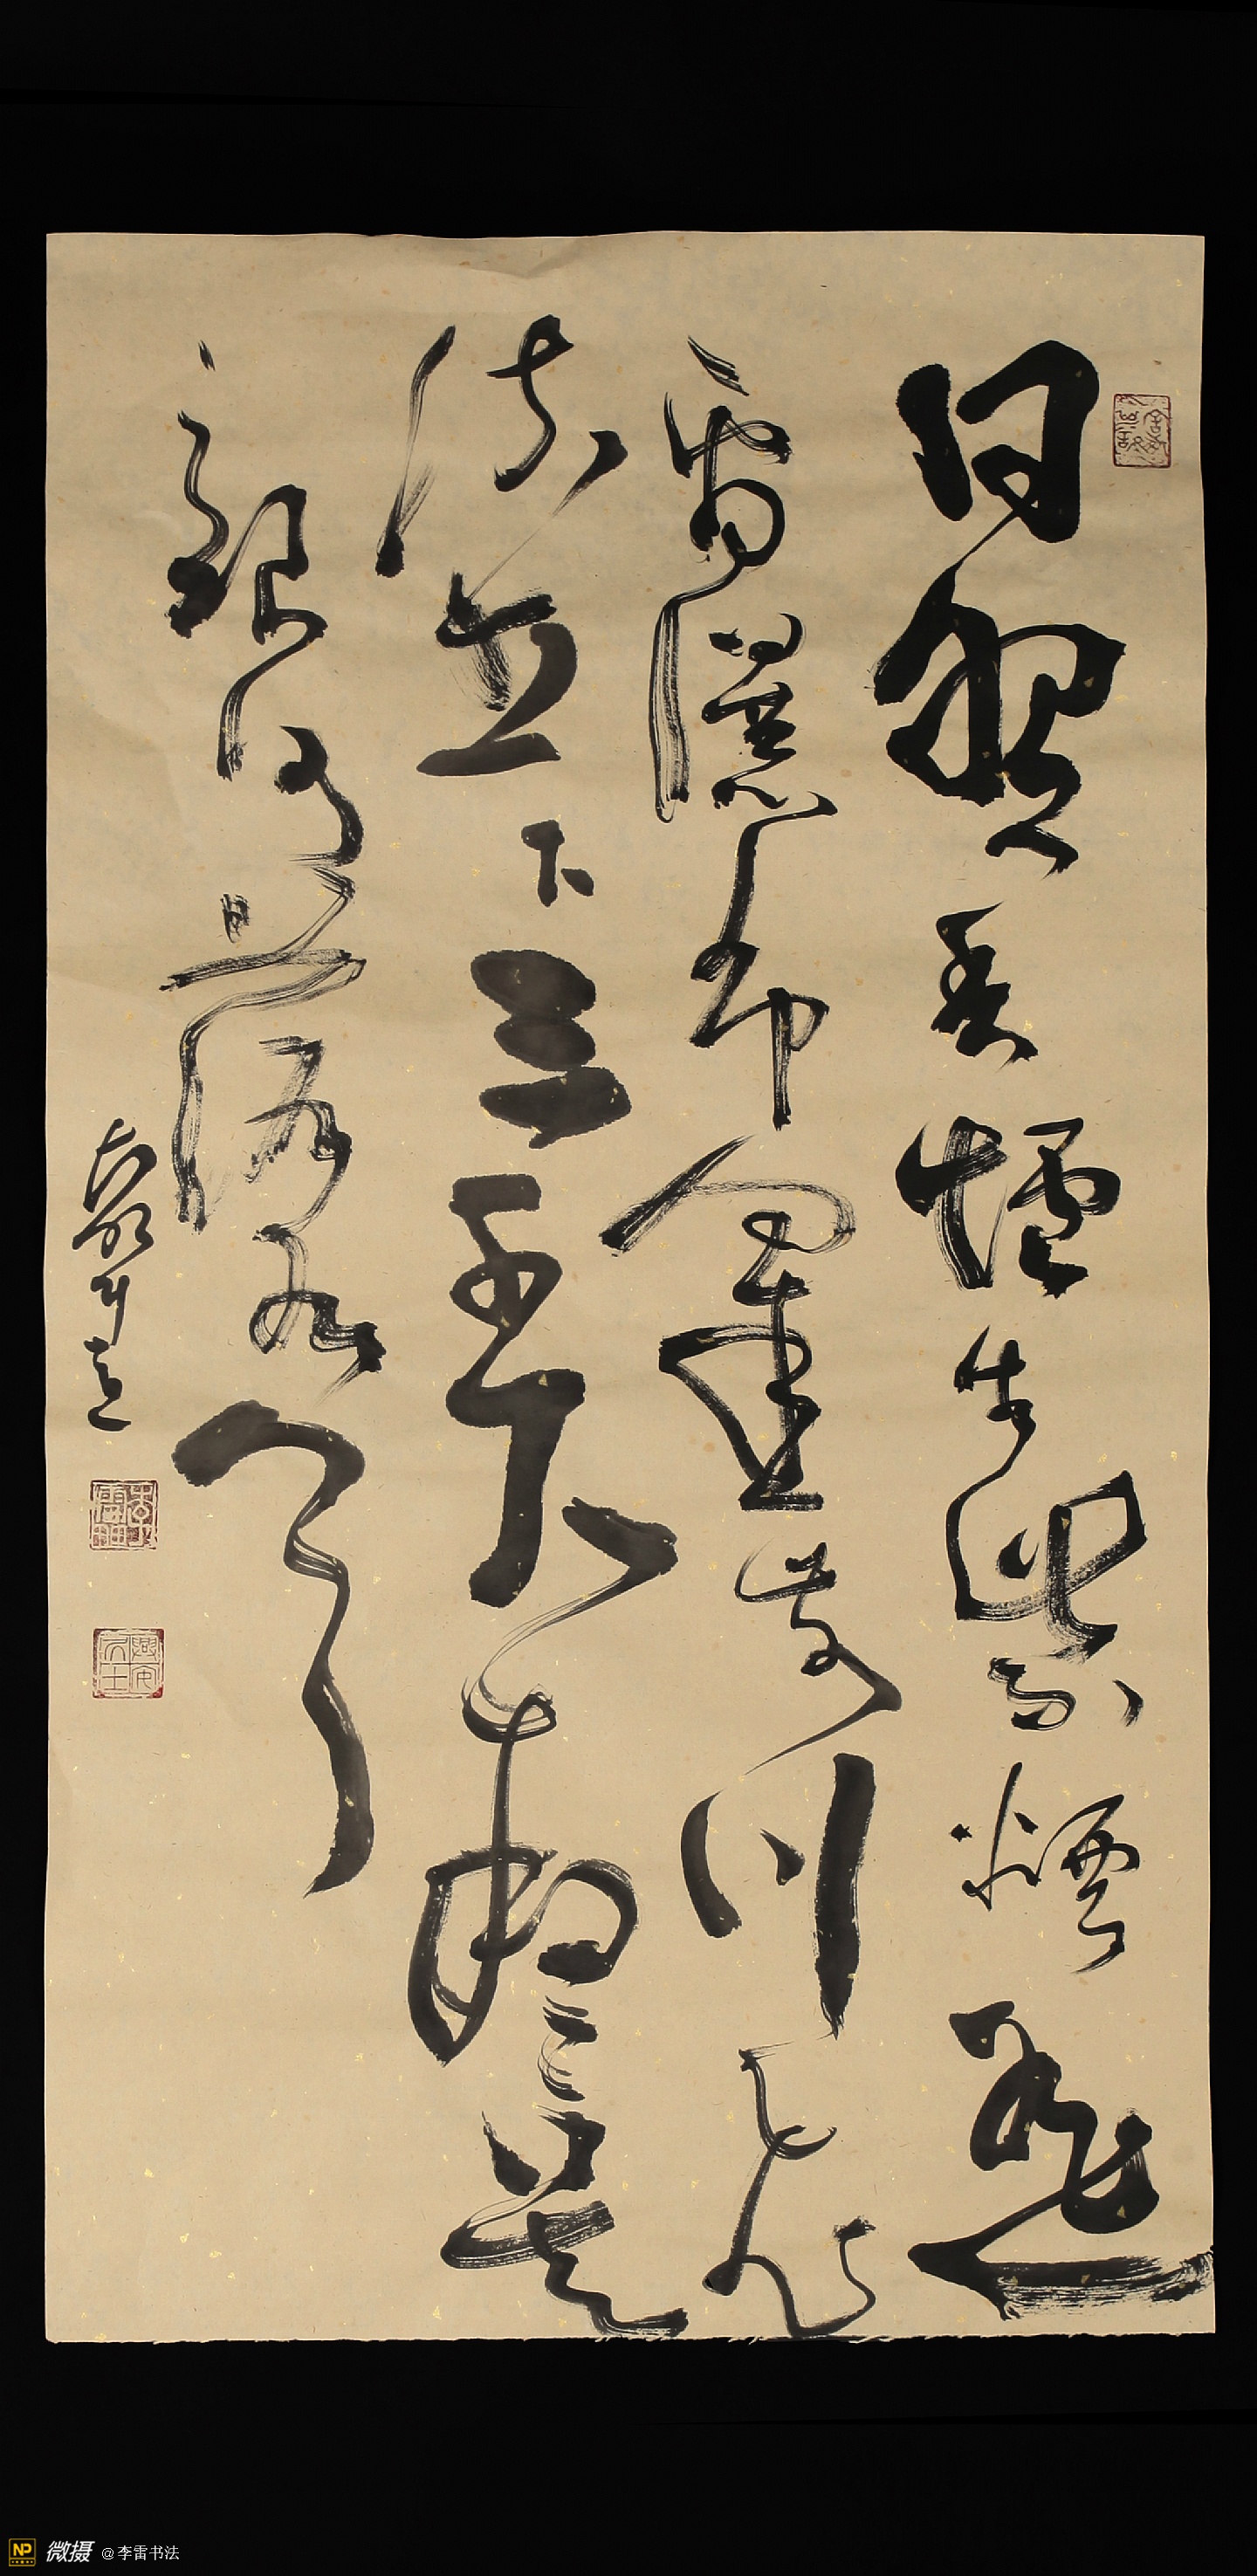 日照香爐生紫煙遥
看瀑布挂前川飛
流直下三千尺疑是
銀河落九天
NP 微摄 @李雷书法